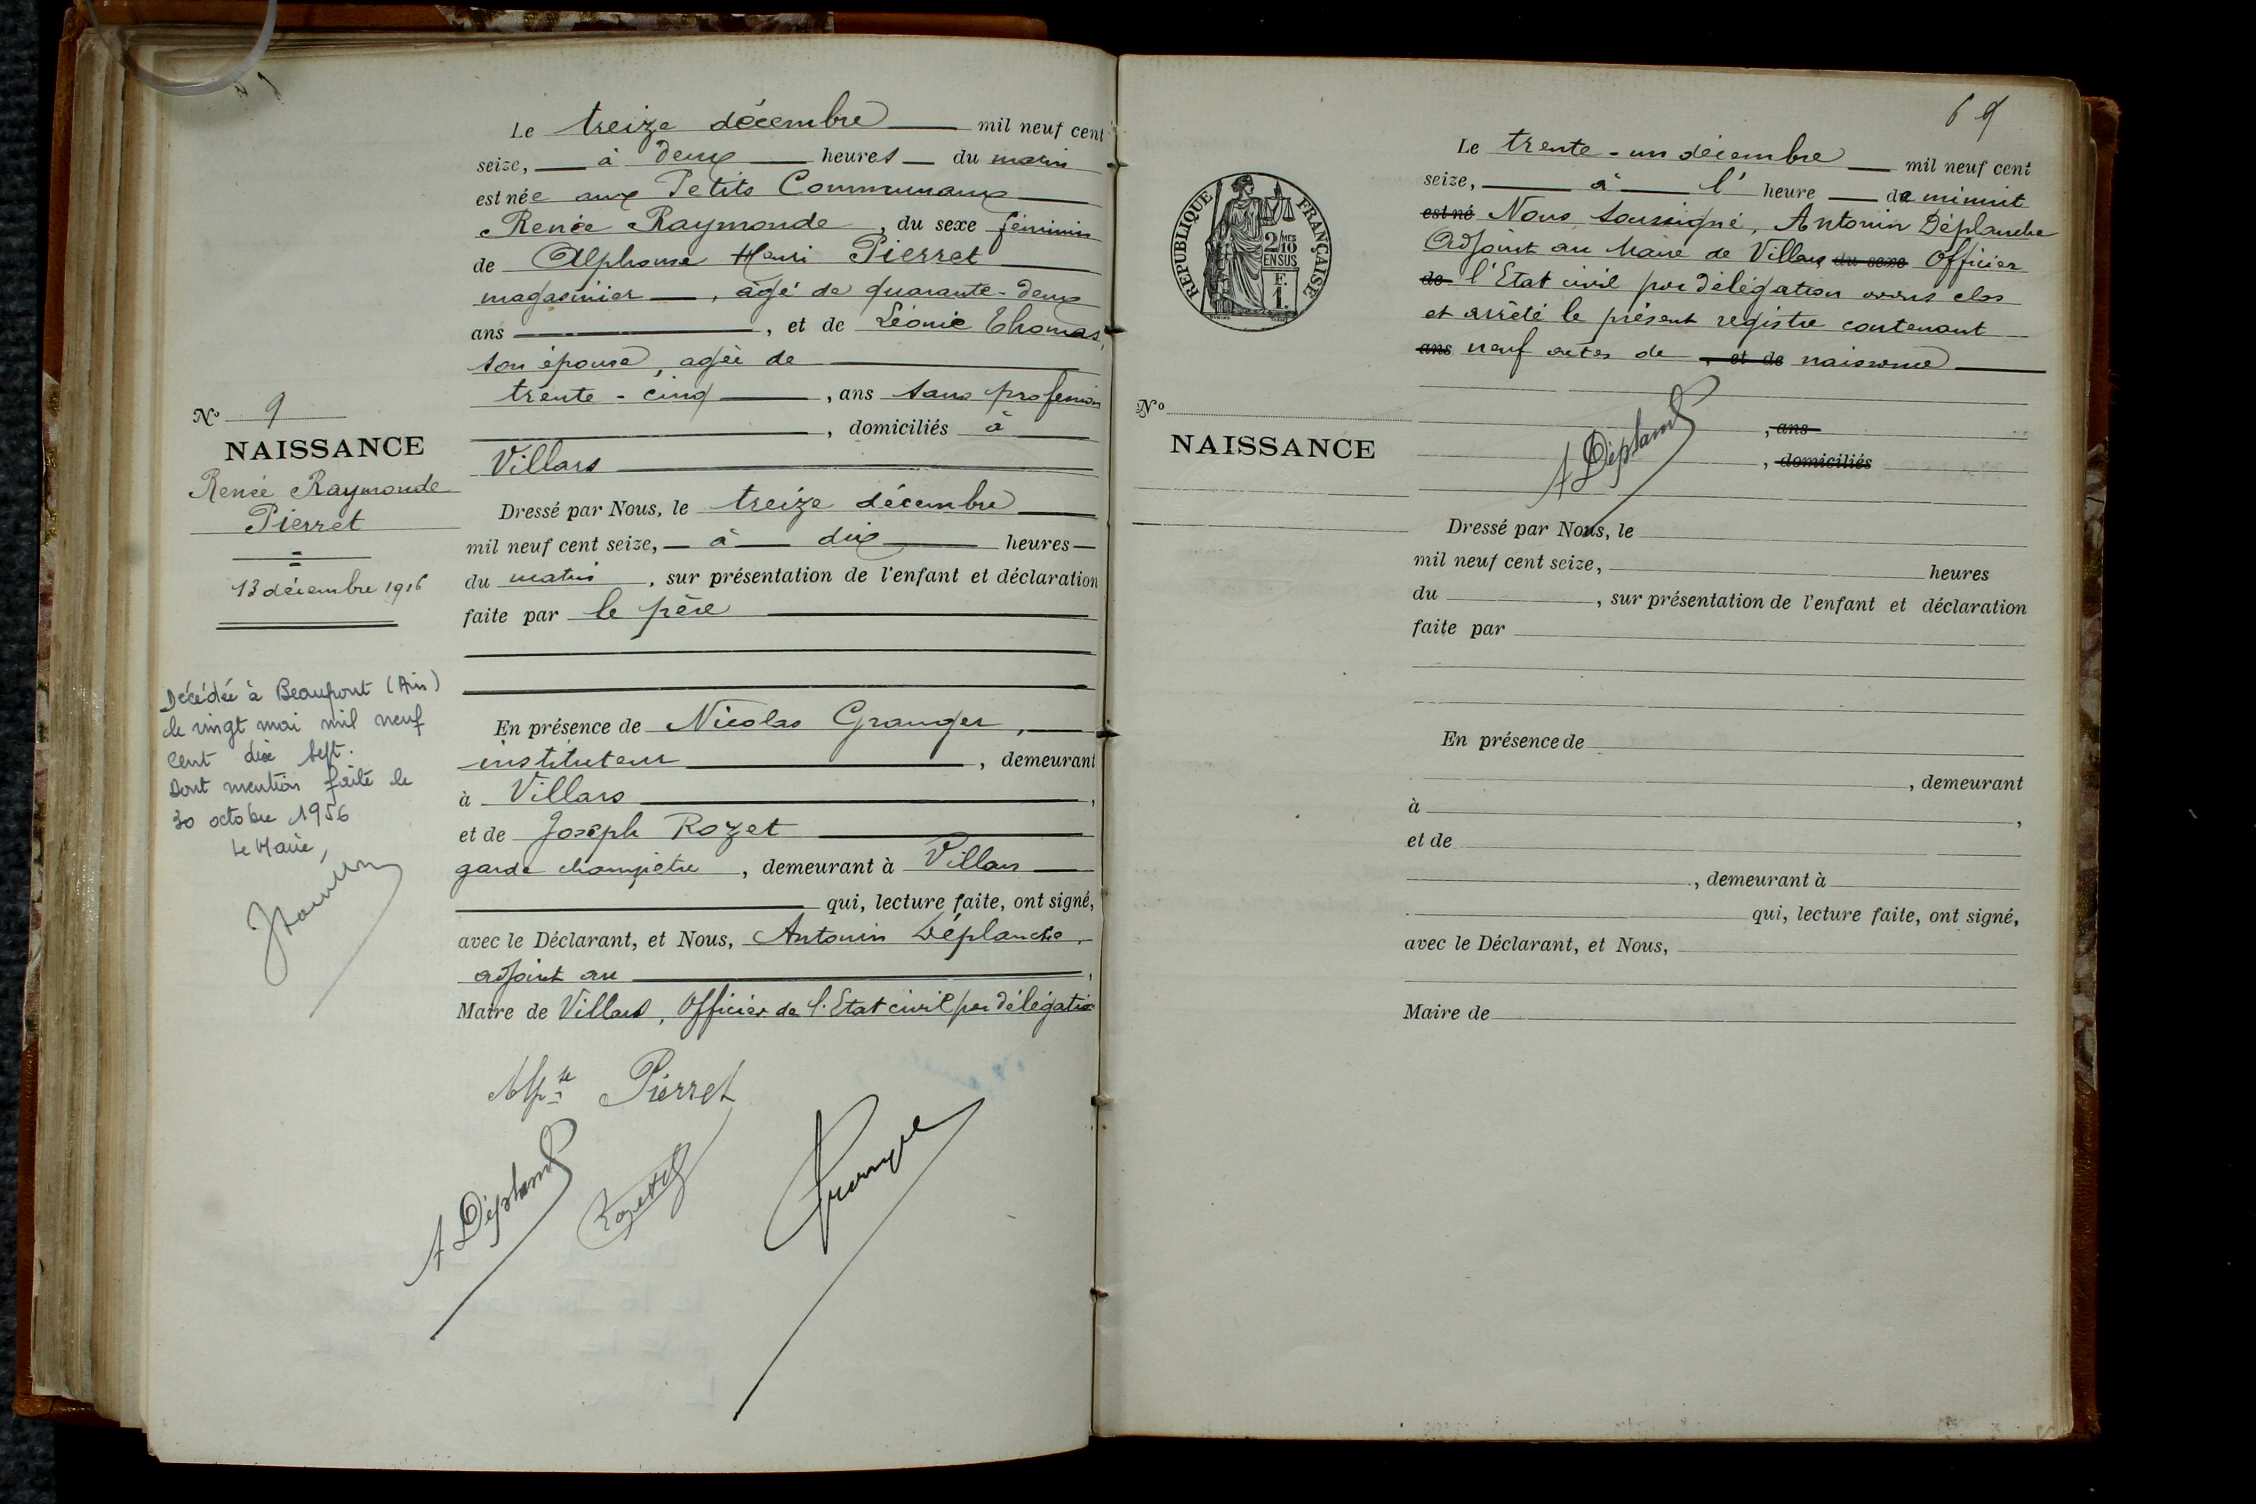 Le treize décembre mil neuf cent
seize, à deux heures du matin
est née aux Petits Communaux
Renée Raymonde, du sexe féminin
de Alphonse Henri Pierret
magasinier, âgé de quarante-deux
ans, et de Léonie Thomas,
son épouse, agée de
trente-cinq, ans sans profession
, domiciliés à
Villars
No 9
NAISSANCE
Renée Raymonde
Pierret
13 décembre 1916
Dressé par Nous, le treize décembre
mil neuf cent seize, à dix heures
du matin, sur présentation de l'enfant et déclaration
faite par le père
Décédée à Beaupont (Ain)
le vingt mai mil neuf
cent dix sept.
Dont mention faite le
30 octobre 1956
Le Maire,
En présence de Nicolas Granger,
instituteur, demeurant
à Villars,
et de Joseph Rozet
garde champêtre, demeurant à Villars
qui, lecture faite, ont signé,
avec le Déclarant, et Nous, Antonin Déplanche,
adjoint au,
Maire de Villars, Officier de l'Etat civil par délégation
Alp.se Pierret
A Déplanche
Rozet
Granger
69
Le trente-un décembre mil neuf cent
seize, à l' heure de minuit
est né Nous soussigné, Antonin Déplanche
Adjoint au Maire de Villars du sexe Officier
de l'Etat civil par délégation avons clos
et arrêté le présent registre contenant
ans neuf actes de , et de naissance
A Déplanche
, ans
, domiciliés
RÉPUBLIQUE FRANÇAISE
2/10 MES
EN SUS
F.
1.
No
NAISSANCE
Dressé par Nous, le
mil neuf cent seize, heures
du , sur présentation de l'enfant et déclaration
faite par
En présence de
, demeurant
à ,
et de
, demeurant à
qui, lecture faite, ont signé,
avec le Déclarant, et Nous,
Maire de